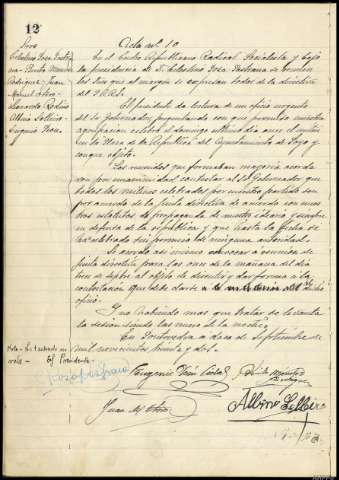 12
Sres
Celestino Poza Pastra
na - Benito Muñoz
Rodriguez - Juan
Manuel Otero -
Leonardo Rodiño
Albino Sobrino -
Eugenio Vean
Acta nº 10
En el Centro Republicano Radical Socialista y bajo
la presidencia de D. Celestino Poza Pastrana se reunen
los Sres que al margen se expresan todos de la directiva
del P.R.R.S.
El presidente da lectura de un oficio urgente
del Sr. Gobernador preguntando con que permiso nuestra
agrupacion celebró el domingo ultimo dia once el mitin
en la Plaza de la Republica del Ayuntamiento de Poyo y
compre oficio.
Los reunidos que formaban mayoria acorda
ron por unanimidad contestar al Sr. Gobernador que
todos los mitines celebrados por nuestro partido son
por acuerdo de la junta directiva de acuerdo con nues
tros estatutos de propaganda de nuestro ideario y siempre
en defensa de la republica y que hasta la fecha se
ha celebrado sin permiso de ninguna autoridad.
Se acordo asi mismo convocar a reunion de
junta directiva para las once de la mañana del dia
trece de sepbre al objeto de discutir y dar forma a la
contestacion que debe darse a dicho
oficio.
Y no habiendo mas que tratar se levanta
la sesion siendo las nueve de la noche.
En Pontevedra a doce de Septiembre de
mil novecientos treinta y dos.
Nota - Lo tachado no
vale -
El Presidente
Eugenio Vean
Benito Muñoz
Rodriguez
Juan M. Otero
Albino Sobrino